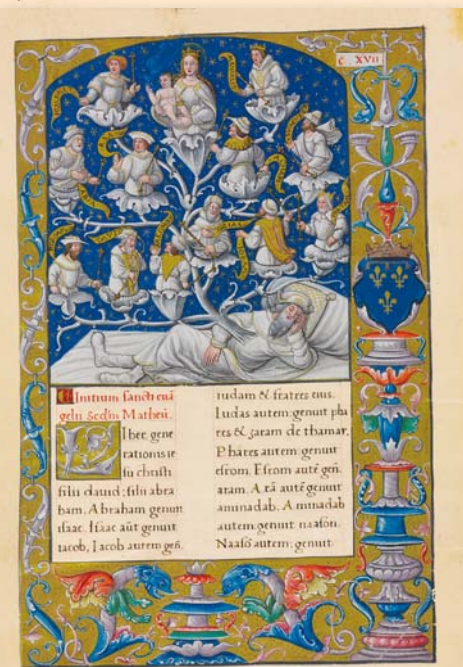 C XVII
Initium sancti euā
gelii Scdm̄ Matheū.
Liber gene
rationis ie
su christi
filii dauid: filii abra
ham. Abraham genuit
isaac. Isaac aūt genuit
iacob. Iacob autem geñ.
iudam & fratres eius.
Iudas autem: genuit pha
res & zaram de thamar.
Phares autem genuit
esrom. Esrom autē geñ.
aram. Arā autē genuit
aminadab. Aminadab
autem: genuit naasōn.
Naasō autem: genuit